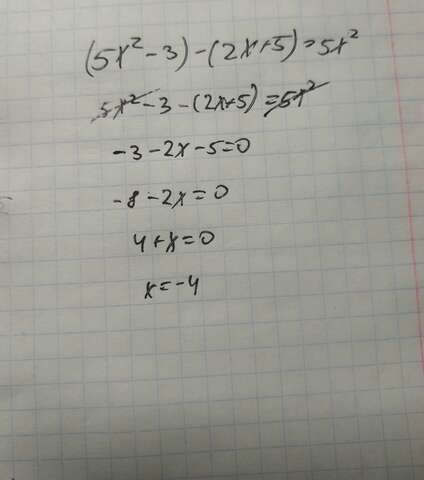 (5x²-3)-(2x+5)=5x²
5x²-3-(2x+5)=5x²
-3-2x-5=0
-8-2x=0
4+x=0
x=-4